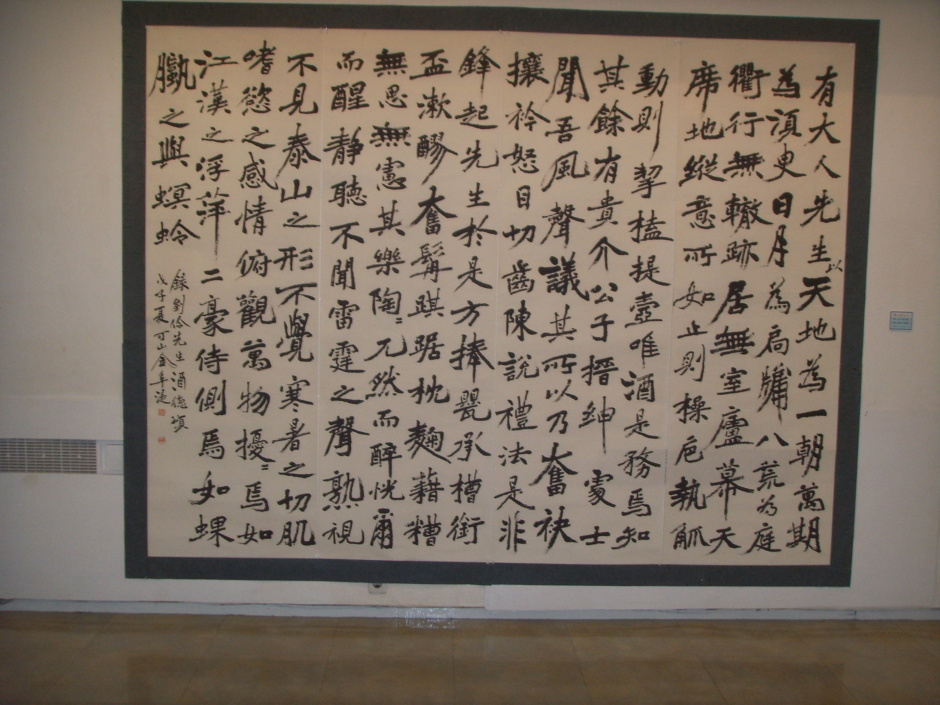 有大人先生以天地為一朝萬期
為湏臾日月為扃牖八荒為庭
衢行無轍跡居無室廬幕天
席地縱意所如止則操卮執觚
動則挈榼提壺唯酒是務焉知
其餘有貴介公子搢紳處士
聞吾風聲議其所以乃奮袂
攘衿怒目切齒陳說禮法是非
鋒起先生於是方捧甖承槽銜
盃漱醪奮髯踑踞枕麴藉糟
無思無慮其樂陶〻兀然而醉恍爾
而醒靜聽不聞雷霆之聲熟視
不見泰山之形不覺寒暑之切肌
嗜慾之感情俯觀萬物擾〻焉如
江漢之浮萍二豪侍側焉如蜾
蠃之與螟蛉
錄劉伶先生酒德頌
戊子夏可山金